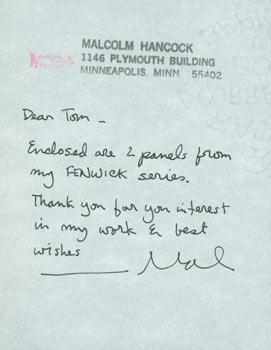 MALCOLM HANCOCK
1146 PLYMOUTH BUILDING
MINNEAPOLIS, MINN. 55402
Dear Tom –
Enclosed are 2 panels from
my FENWICK series.
Thank you for you interest
in my work & best
wishes
Mal